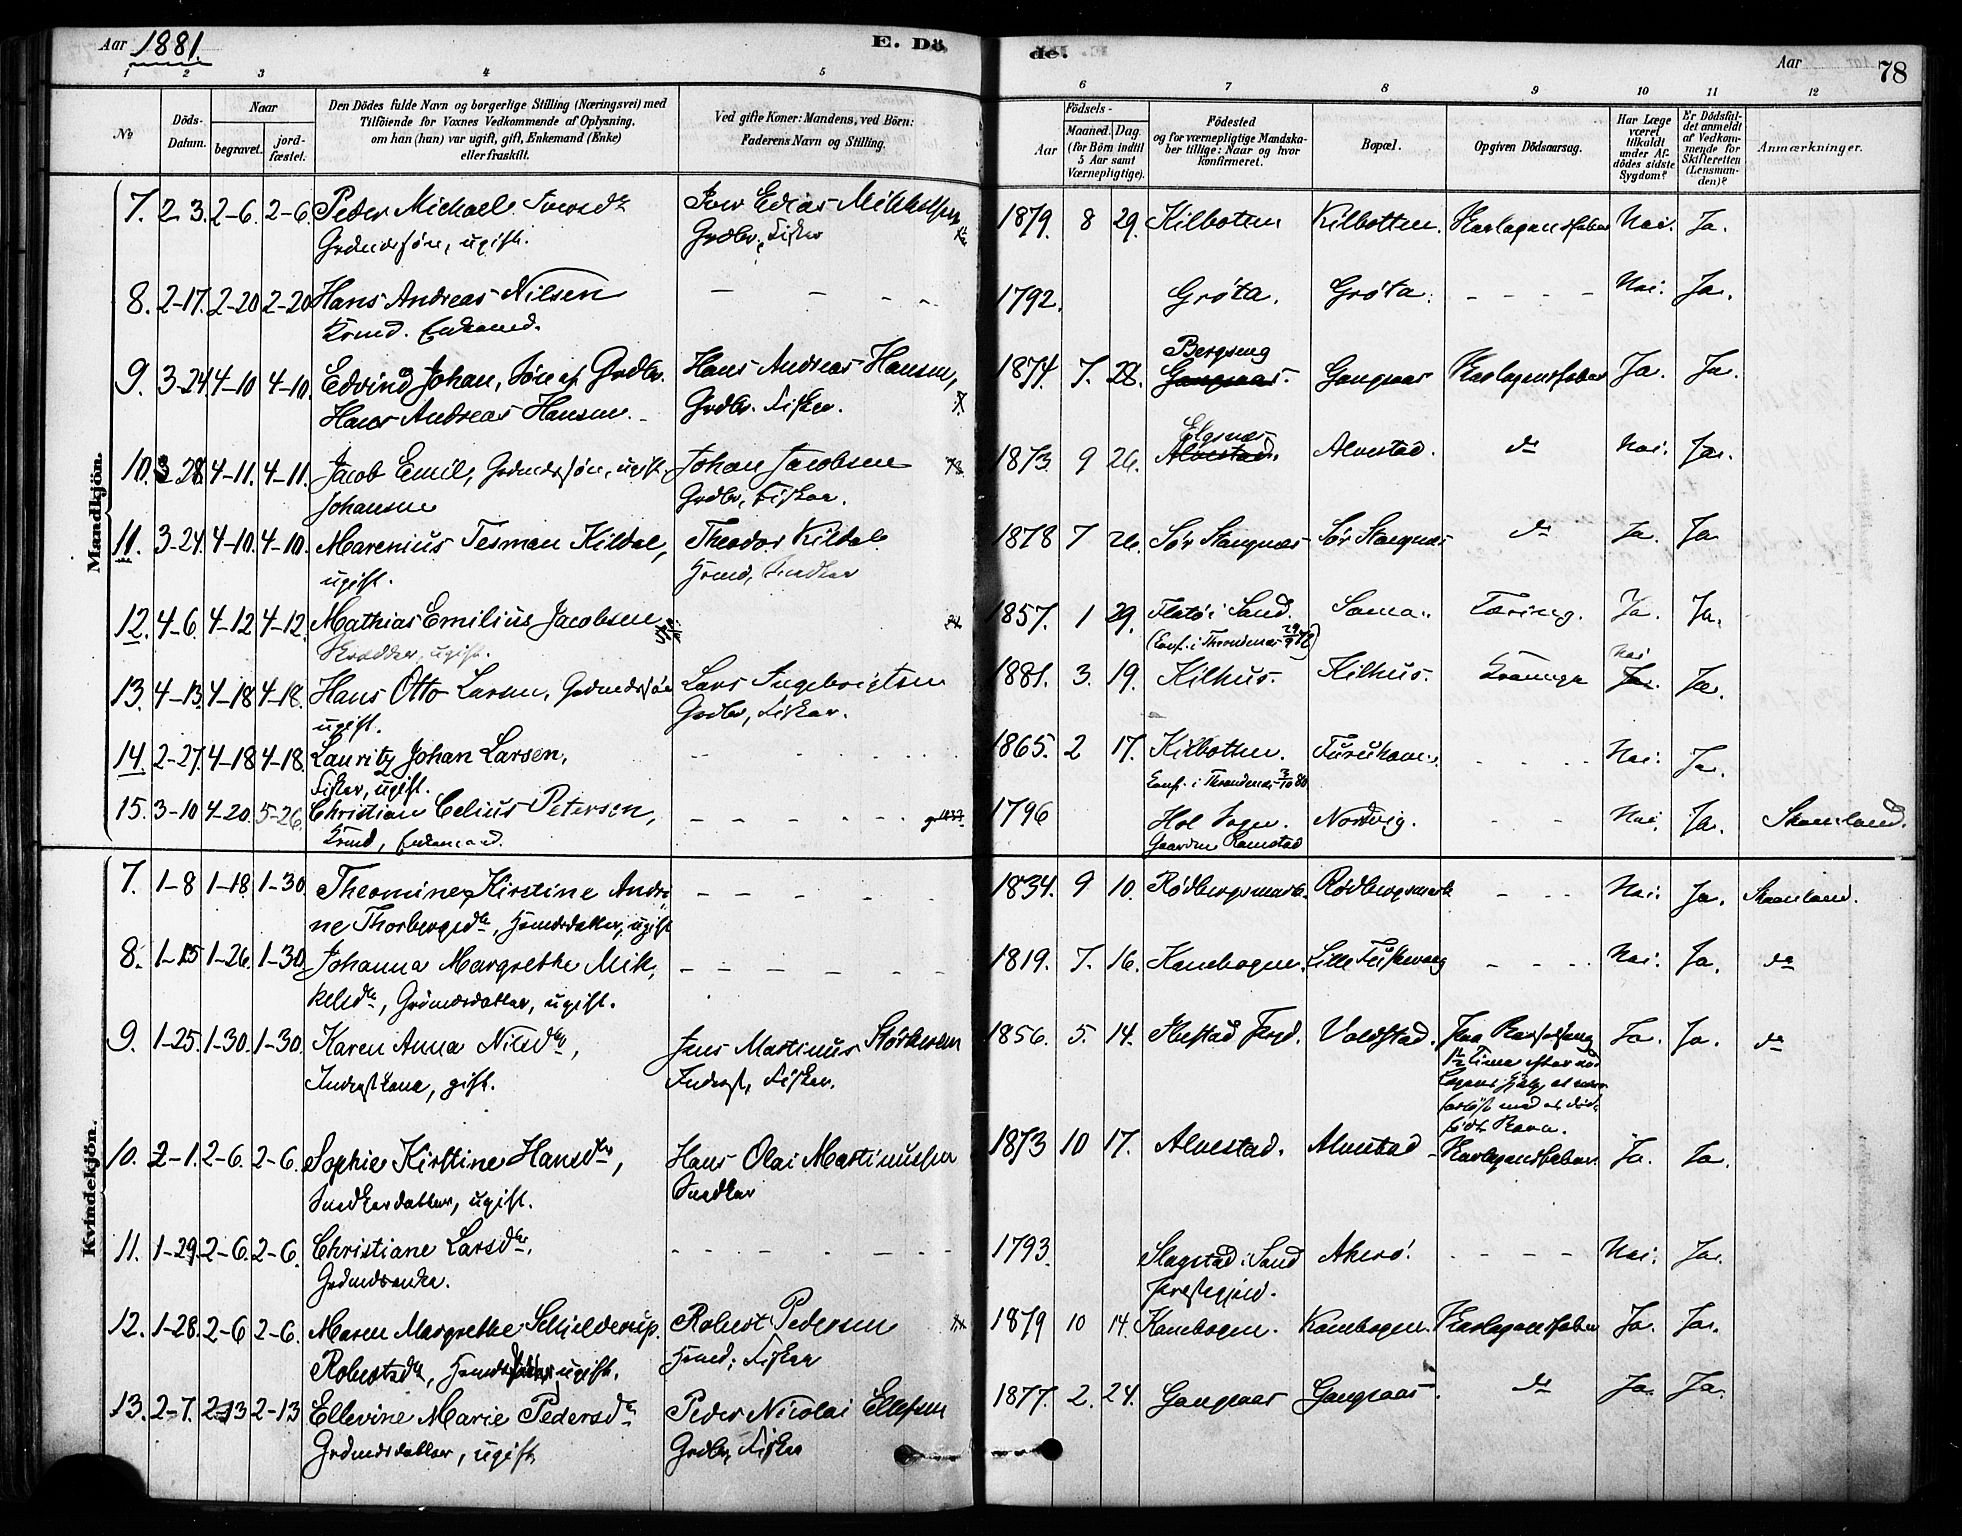 Aar 1881.
E. Dö
de.
Aar
78
1 2 3 4 5 6 7 8 9 10 11 12
No
Döds-
Datum.
Naar
begravet.
jord-
fæstet.
Den Dödes fulde Navn og borgerlige Stilling (Næringsvei) med
Tilföiende for Voxnes Vedkommende af Oplysning,
om han (hun) var ugift, gift, Enkemand (Enke)
eller fraskilt.
Ved gifte Koner: Mandens, ved Börn:
Faderens Navn og Stilling.
Födsels-
Aar
Maaned. Dag.
(for Börn indtil
5 Aar samt
Værnepligtige).
Födested
og for værnepligtige Mandska-
ber tillige: Naar og hvor
konfirmeret.
Bopæl.
Opgiven Dödsaarsag.
Har Læge
været
tilkaldt
under Af-
dödes sidste
Sygdom?
Er Dödsfal-
det anmeldt
af Vedkom-
mende for
Skifteretten
(Lensman-
den)?
Anmærkninger.
Mandkjön.
7. 2 3. 2-6. 2-6. Peder Michael Iversdn Iver Edias 1879. 8 29. Kilbotten Kilbotten. Nei. Ja.
Grdmdssøn, ugift. Grdbr, Fisker
8. 2-17. 2-20 2-20 Hans Andreas Nilsen 1792. Grøta. Grøta. Nei. Ja.
Enkemd.
9. 3-24. 4-10 4-10. Edvind Johan, Søn af Grdbr. Hans Andreas Hansen, 1874. 7. 28. Bergseng Gangsaas. Gangsaas Ja. Ja.
Hans Andreas Hansen. Grdbr. Fisker.
10. 3 28. 4-11. 4-11. Jacob Emil, Grdmdssøn, ugift. Johan Jacobsen 1873. 9 26. Elgsnæs Alvestad. Alvestad. do Nei. Ja.
Johansen Grdbr, Fisker.
11. 3-24. 4-10. 4-10. Marenius Tesman Kildal, Theodor Kildal. 1878 7 26. Sør Stangnæs Sør Stangnæs do Ja. Ja
ugift. Snedker
12. 4-6. 4-12 4-12. Mathias Emilius Jacobsen 1857. 1 29. Flatø i Sand. Sama. Tæring. Ja. Ja.
ugift. (Conf. i Throndenæs
13. 4-13. 4-18 4-18. Hans Otto Larsen, Grdmdssøn Lars Ingebrigtsen 1881. 3. 19. Kilhus. Kilhus. Krampe Nei Ja. Ja.
ugift. Grdbr, Fisker.
14. 2-27. 4-18 4-18. Lauritz Johan Larsen, 1865. 2 17. Kilbotten. Nei. Ja.
Fisker, ugift. Conf. i Throndenæs
15. 3-10 4-20. 5-26. Christian Celius Petersen, 1796 Hol Sogn. Nordvig. Nei. Ja. Skaanland.
Enkemand. Gaarden Ramstad
Kvindekjön.
7. 1-8 1-18. 1-30. Theomine Kirstine Andri- 1834. 9 10. Rødbergsmark. Rødbergsmark Nei. Ja. Skaanland.
ne Thorbergsdtr, ugift
8. 1-15 1-26. 1-30. Johanna Margrethe Mik- 1819. 7. 16. Kanebogen. Lille Nei. Ja. do
kelsdtr, ugift.
9. 1-25. 1-30. 1-30. Karen Anna Nilsdtr, Jens Martinus Størkersen 1856. 5. 14. Ibestad Præstegjd. Voldstad. Paa Barselseng Ja. Ja. do
Inderstkone, gift. Inderst, Fisker. 1½ Time efter ved
Lægens Hjælp at være
forløst med et død-
født Barn.
10. 2-1. 2-6. 2-6. Sophie Kirstine Hansdtr, Hans Olai Martinussen 1873 10 17. Alvestad. Alvestad Ja. Ja.
Snedkerdatter, ugift. Snedker
11. 1-29. 2-6. 2-6. Christiane Larsdtr, 1793. Slagstad i Sand Akerø. Nei. Ja.
Grdmdsenke. Præstegjeld.
12. 1-28. 2-6 2-6. Maren Margrethe Schielderup. Robert Pedersen 1879 10 14. Kanebogen. Kanebogen. Ja. Ja.
Robertsdtr, ugift. Fisker
13. 2-7. 2-13 2-13 Ellevine Marie Pedersdtr Peder Nicolai Ellefsen 1877. 2. 24. Gangsaas Gangsaas. do Ja. Ja.
Grdmdsdatter, ugift Grdbr, Fisker